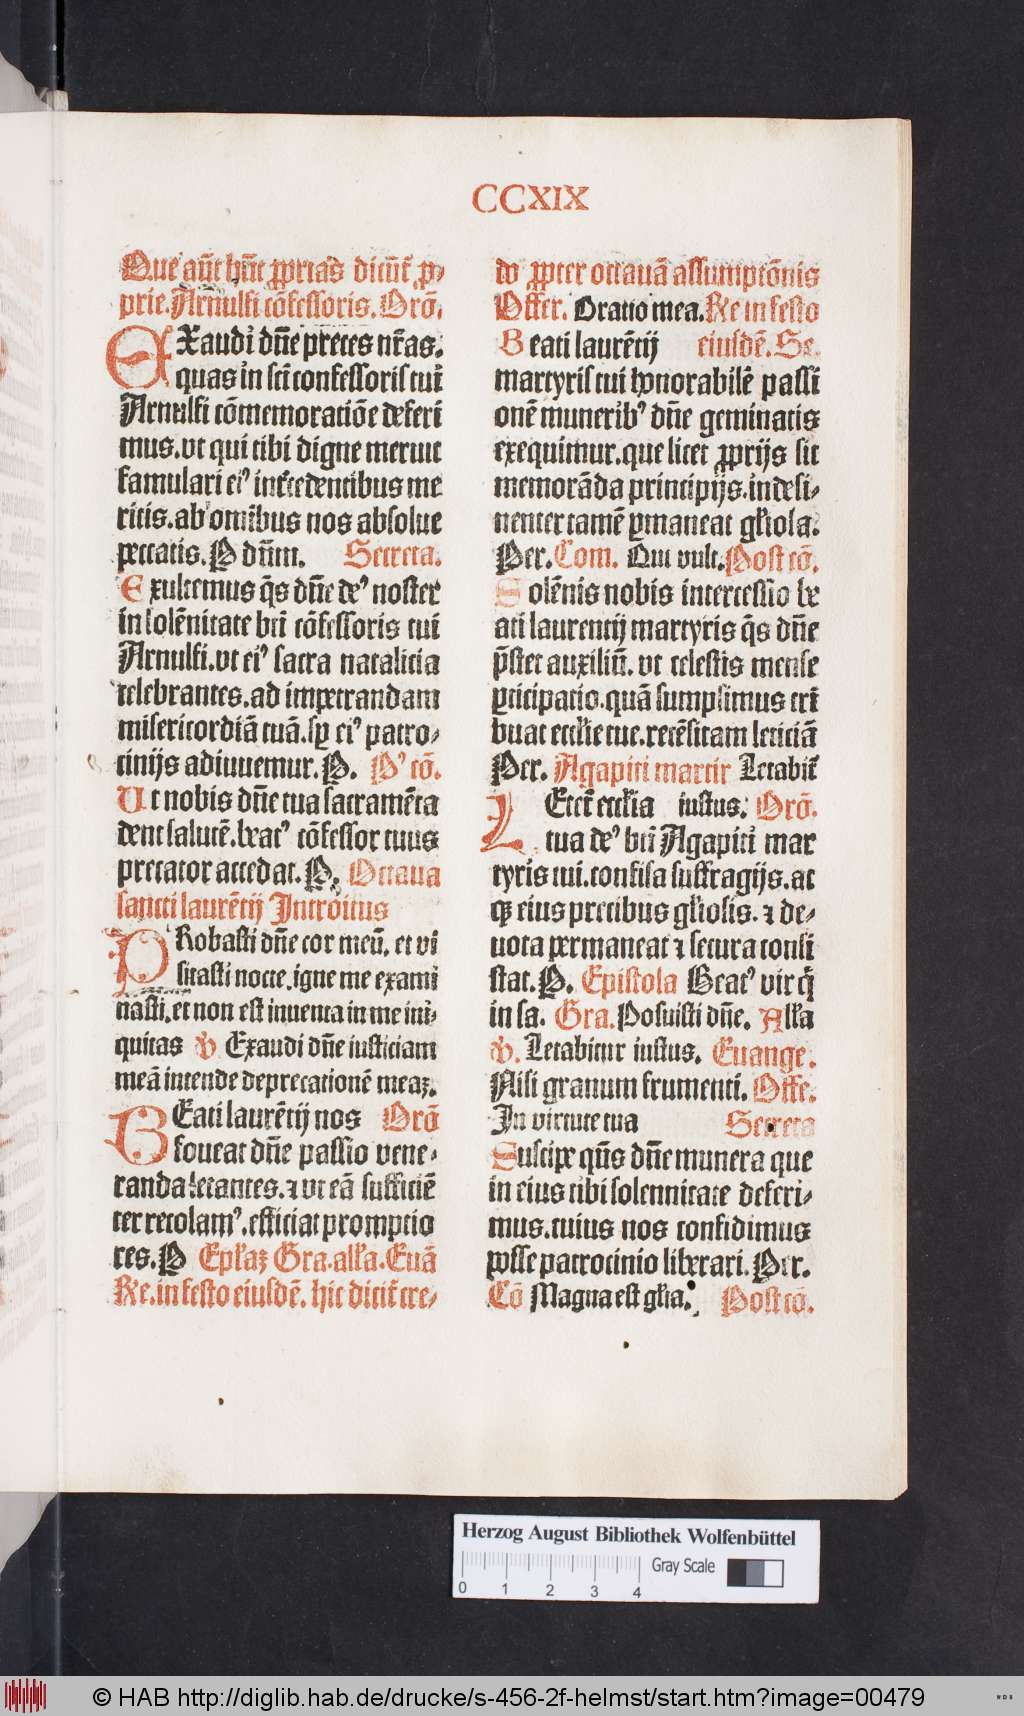 CCXIX
Que aūt hūc ꝓprias dicūt̄ ꝓ-
prie. Arnulfi cōfessoris. Orō.
EXaudi dn̄e preces nr̄as.
quas in sc̄i confessoris tui
Arnulfi cōmemoratiōe deferi
mus. vt qui tibi digne meruit
famulari eiꝰ intercedentibus me
ritis. ab omībus nos absolue
peccatis. P dn̄m. Secreta.
Exultemus q̄s dn̄e deꝰ noster
in solēnitate bt̄i cōfessoris tui
Arnulfi. vt eiꝰ sacra natalicia
celebrantes. ad impetrandam
misericordiā tuā. sꝑ eiꝰ patro-
cinijs adiuuemur. P. Pꝰ cō.
Ut nobis dn̄e tua sacramēta
dent salutē. beatꝰ cōfessor tuus
precator accedat. P. Octaua
sancti laurētij Introitus
PRobasti dn̄e cor meū. et vi
sitasti nocte. igne me exami
nasti. et non est inuenta in me ini-
quitas ℣ Exaudi dn̄e iusticiam
meā intende deprecationē meaꝫ.
BEati laurētij nos Orō
foueat dn̄e passio vene-
randa letantes. ⁊ vt eā sufficiē
ter recolamꝰ. efficiat promptio
res. P Epl̄aꝫ Gra. all̄a. Euā
Re. in festo eiusdē. hic dicit̄ cre-
do ꝓpter octauā assumptōnis
Offer. Oratio mea. Re in festo
Beati laurētij eiusdē. Se.
martyris tui honorabilē passi
onē muneribꝰ dn̄e geminatis
exequimur. que licet ꝓprijs sit
memorāda principijs. indesi-
nenter tamē ꝑmaneat gl̄iosa.
Per. Com. Qui vult. Post cō.
Solēnis nobis intercessio be
ati laurentij martyris q̄s dn̄e
p̄stet auxiliū. vt celestis mense
ꝑticipatio. quā sumpsimus tri
buat eccl̄ie tue. recēsitam leticiā
Per. Agapiti martir Letabit̄
LEtet̄ eccl̄ia iustus. Orō.
tua deꝰ bt̄i Agapiti mar
tyris tui. confisa suffragijs. at
qꝫ eius precibus gl̄iosis. ⁊ de-
uota permaneat ⁊ secura consi
stat. P. Epistola Beatꝰ vir q̄
in sa. Gra. Posuisti dn̄e. All̄a
℣. Letabitur iustus. Euange.
Nisi granum frumenti. Offe.
In virtute tua Secreta
Suscipe qūs dn̄e munera que
in eius tibi solennitate deferi-
mus. cuius nos confidimus
posse patrocinio liberari. Per.
Cō Magna est gl̄ia. Post cō.
Herzog August Bibliothek Wolfenbüttel
Gray Scale
0 1 2 3 4
© HAB http://diglib.hab.de/drucke/s-456-2f-helmst/start.htm?image=00479